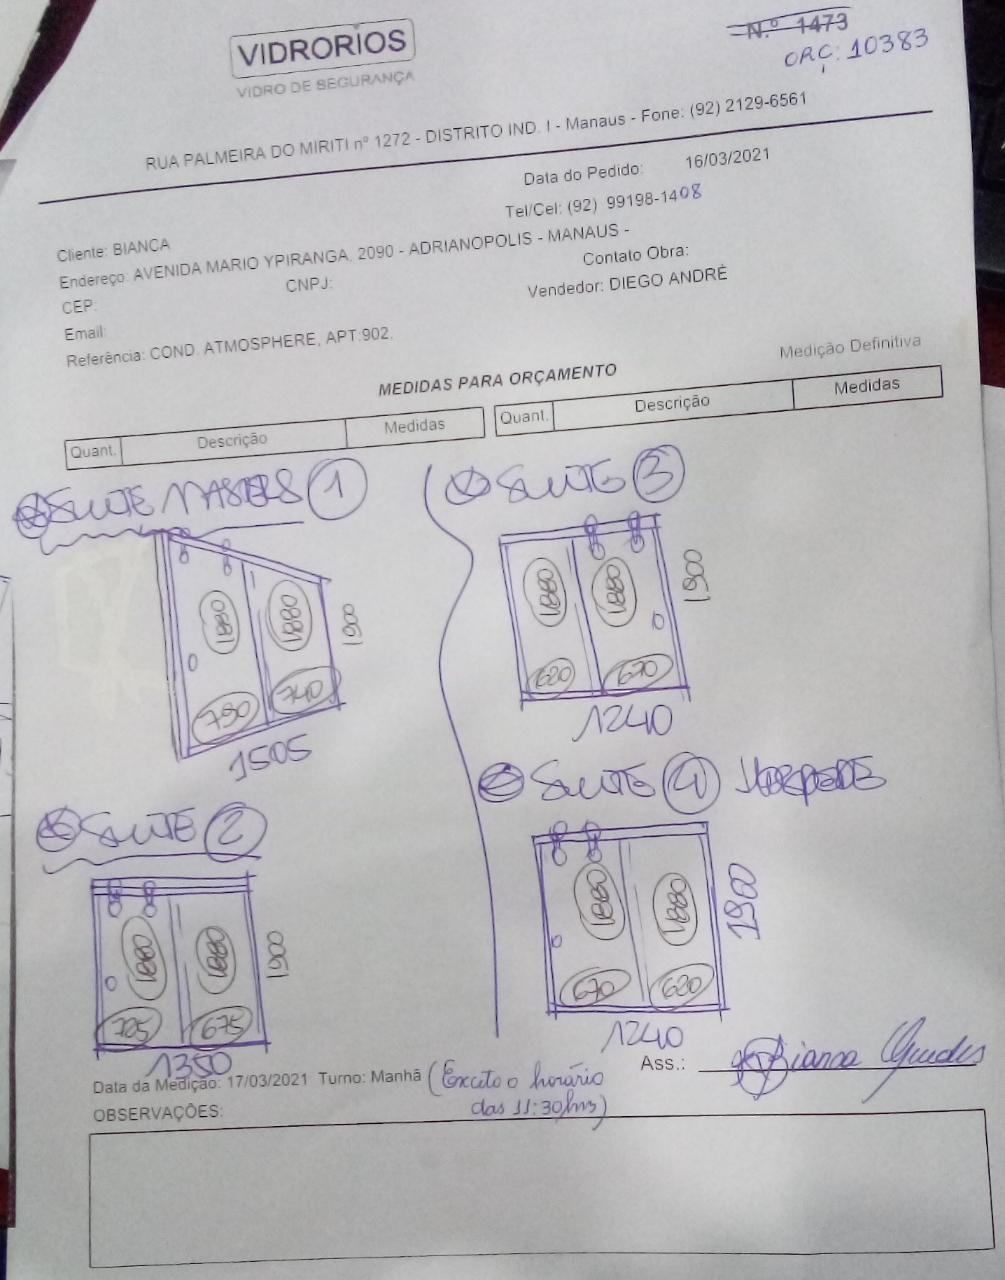 VIDRORIOS
VIDRO DE SEGURANÇA
N.º 1473
ORÇ: 10383
RUA PALMEIRA DO MIRITI nº 1272 - DISTRITO IND. I - Manaus - Fone: (92) 2129-6561
Data do Pedido: 16/03/2021
Tel/Cel: (92) 99198-1408
Cliente: BIANCA
Endereço: AVENIDA MARIO YPIRANGA, 2090 - ADRIANOPOLIS - MANAUS -
CEP: CNPJ: Contato Obra:
Email: Vendedor: DIEGO ANDRÉ
Referência: COND. ATMOSPHERE, APT:902,
MEDIDAS PARA ORÇAMENTO
Medição Definitiva
Quant. Descrição Medidas Quant. Descrição Medidas
SUITE MASTER 1
1880 1880 1900
790 740
1505
SUITE 3
1880 1880 1900
620 670
1240
SUITE 2
1880 1880 1900
725 675
1350
SUITE 4 HOSPEDE
1880 1880 1900
670 620
1240
Data da Medição: 17/03/2021 Turno: Manhã (Exceto o horário
das 11:30hrs)
Ass.: Bianca Guedes
OBSERVAÇÕES: